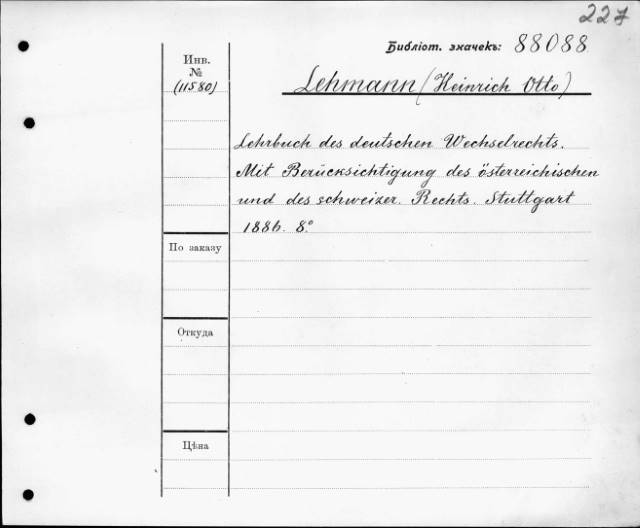 227
Библіот. значекъ: 88088
Инв.
№
(11580)
Lehmann (Heinrich Otto)
Lehrbuch des deutschen Wechselrechts.
Mit Berücksichtigung des österreichischen
und des schweizer. Rechts. Stuttgart
1886. 8.°
По заказу
Откуда
Цѣна